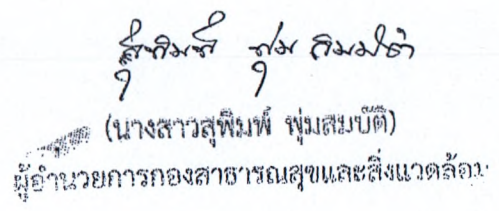 สุพิมพ์ พุ่มสมบัติ
(นางสาวสุพิมพ์ พุ่มสมบัติ)
ผู้อำนวยการกองสาธารณสุขและสิ่งแวดล้อม